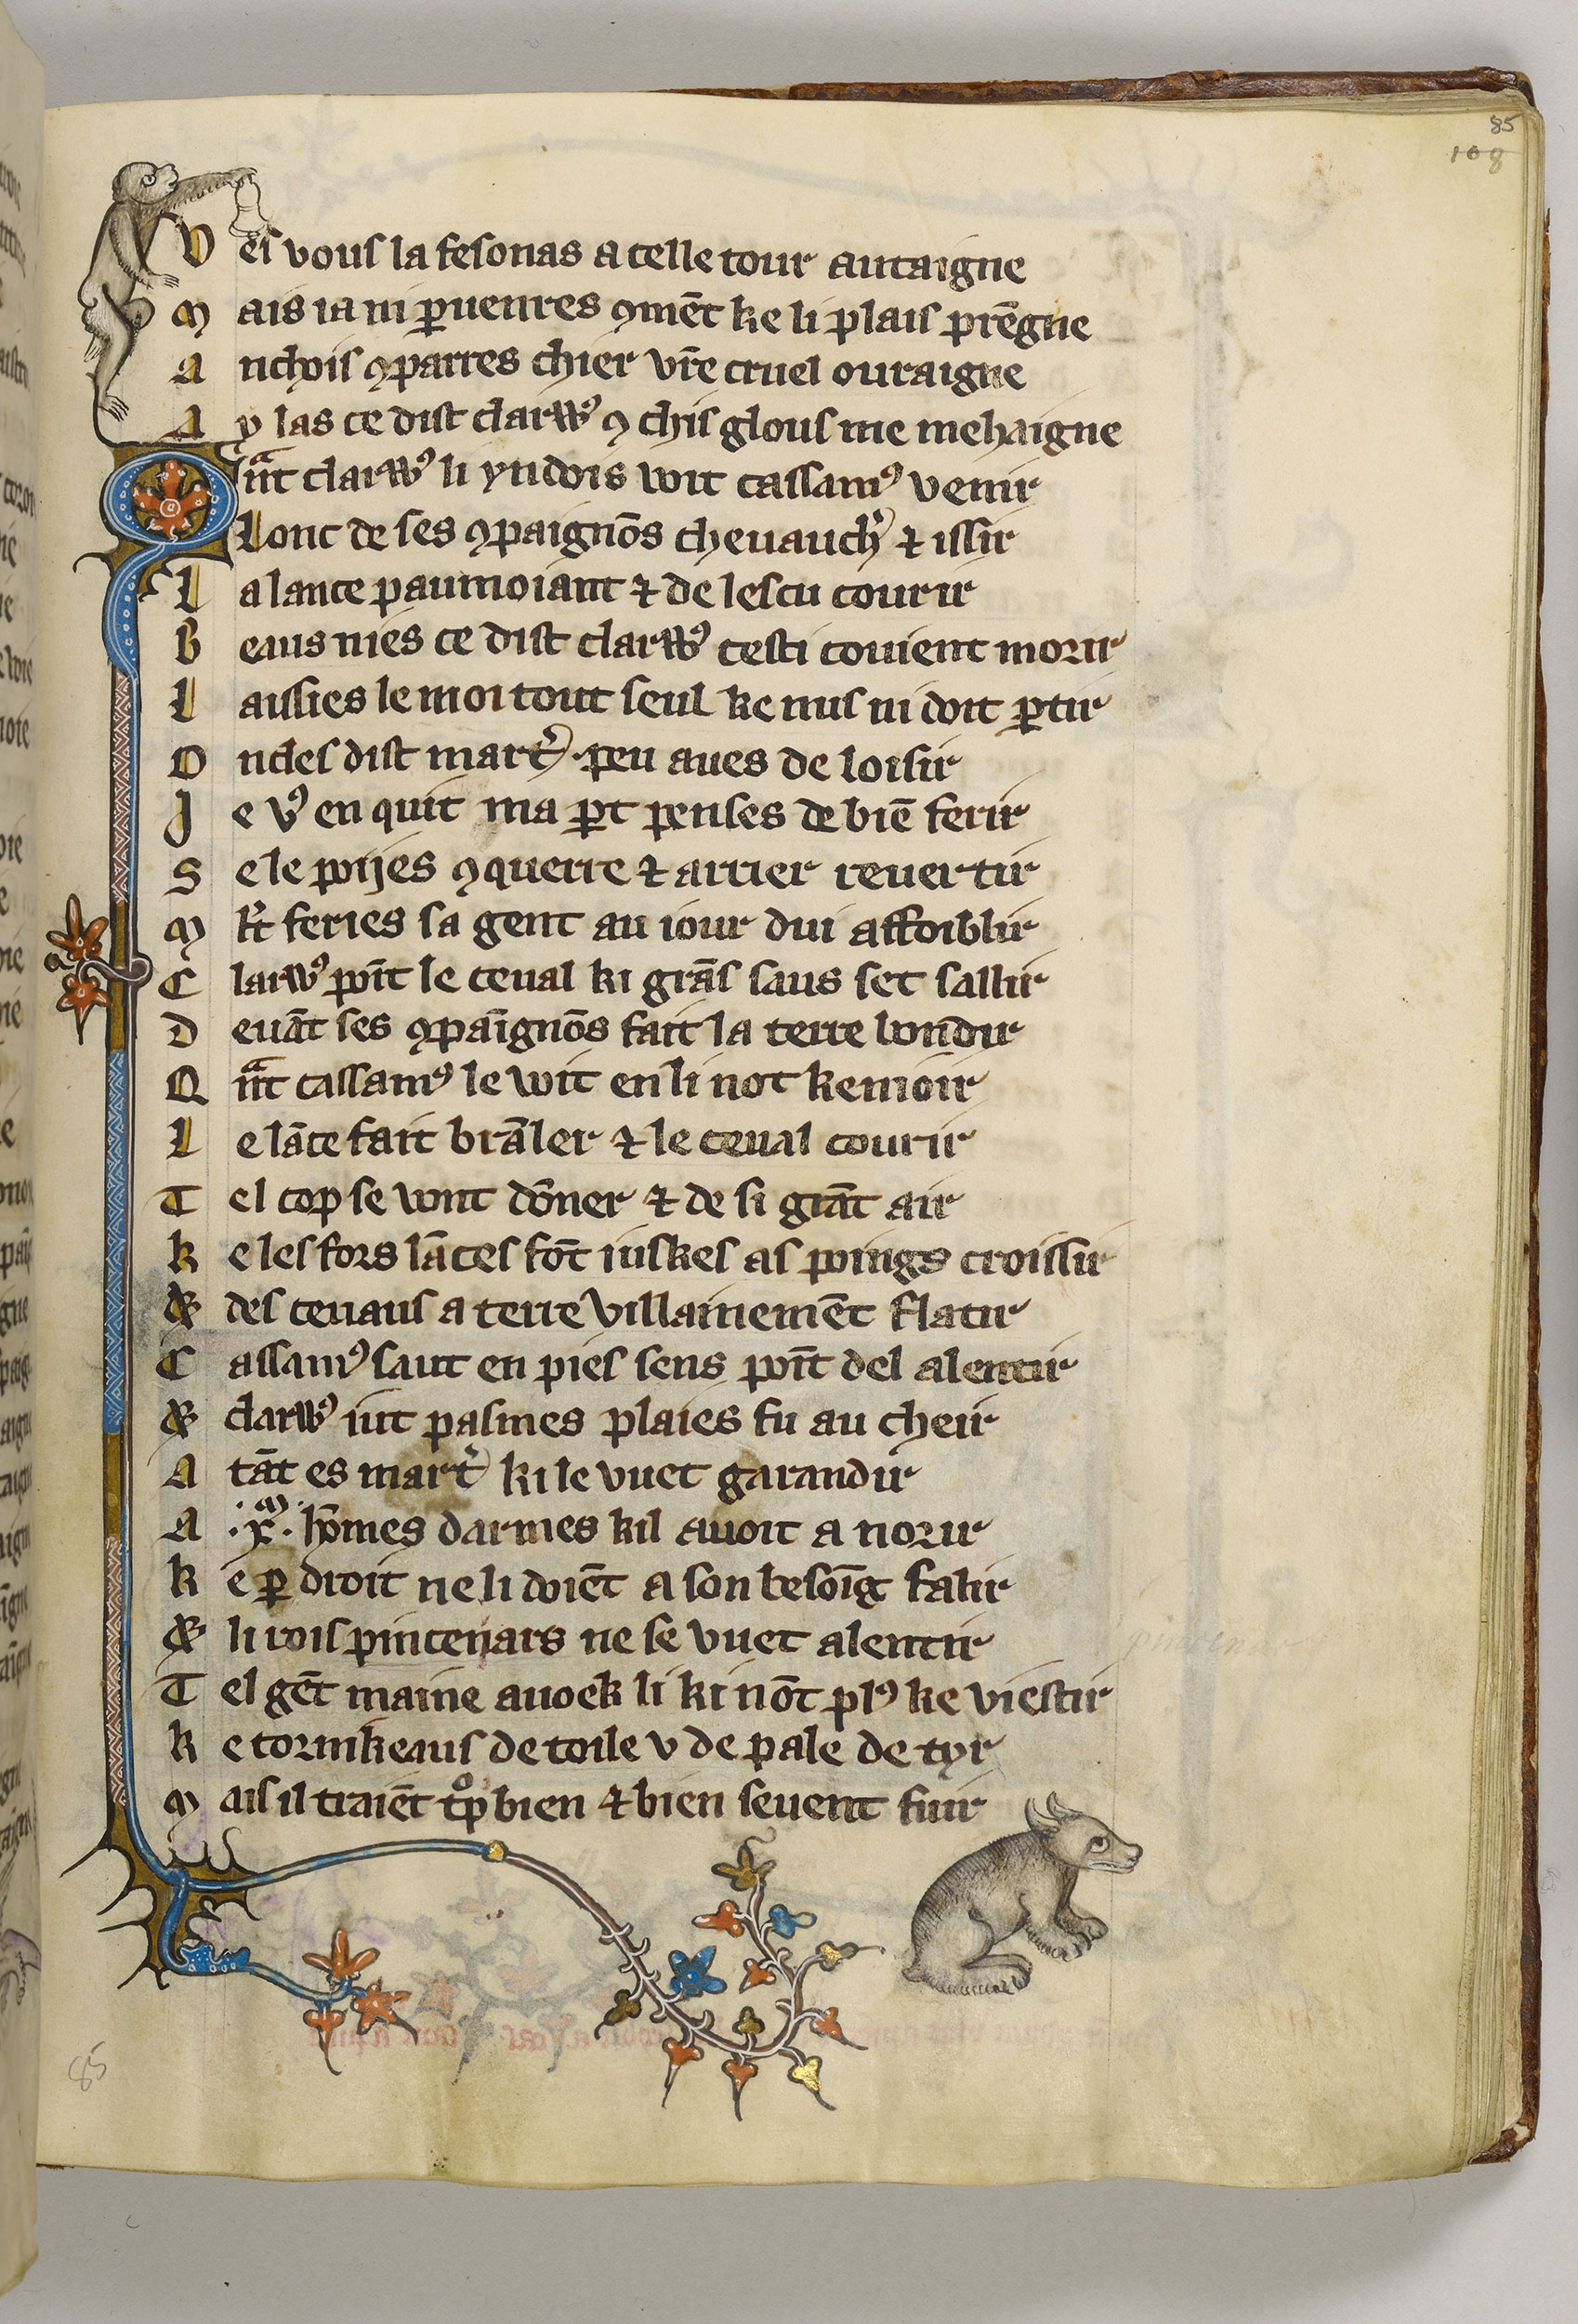 85
108
V ei vous la fesonas a celle tour autaigne
M ais ia ni ꝑuenres ꝯmēt ke li plais prēgne
A nchois ꝯparres chier vr̄e cruel ouraigne
A y las ce dist clarwꝰ ꝯ chis glous me mehaigne
Q nᷓt clarwꝰ li yndois voit cassamꝰ venir
L onc de ses ꝯpaignōs cheuauch᾽ ⁊ issir
L a lance paumoiant ⁊ de lescu courir
B eaus nies ce dist clarwꝰ cesti couient morir
L aissies le moi tout seul ke nus ni doit ꝑtir
O ncles dist mart᾽ · peu aues de loisir
J e vꝰ en quit ma ꝑt penses de biē ferir
S e le poijes ꝯquerre ⁊ arrier reuertir
M lt̄ feries sa gent au iour dui affoiblir
C larwꝰ poīt le ceual ki grās saus set sallir
D euāt ses ꝯpaīgnōs fait la terre bondir
Q nᷓt cassamꝰ le voit en li not kenioir
L e lāce fait brāler ⁊ le ceual courir
T el cop se vont dōner ⁊ de si grāt air
K e les fors lāces fōt iuskes as poings croissir
& des ceuaus a terre villainemēt flatir
C assamꝰ saut en pies sens poīt del alentir
& clarwꝰ iut pasmes plaies fu au cheir
A tāt es mart᾽ ki le vuet garandir
A ·xᵐ· hōmes darmes kil auoit a norir
K e ꝑ droit ne li doiēt a son besoīg falir
& li rois pincenars ne se vuet alentir
T el gēt maine auoek li ki nōt plꝰ ke viestir
K e tornikeaus de toile v de pale de tyr
M ais il traiēt tͦp bien ⁊ bien seuent fuir
85